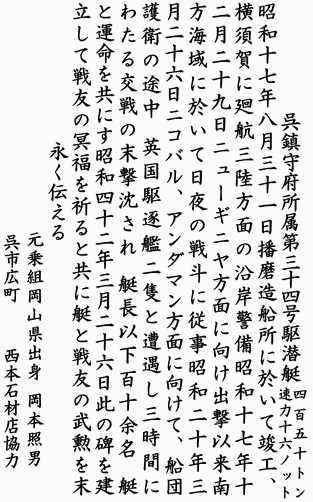 呉鎮守府所属第三十四号駆潜艇 四百五十トン
速力十六ノット
昭和十七年八月三十一日播磨造船所に於いて竣工、
横須賀に廻航三陸方面の沿岸警備昭和十七年十
二月二十九日ニューギニヤ方面に向け出撃以来南
方海域に於いて日夜の戦斗に従事昭和二十年三
月二十六日ニコバル、アンダマン方面に向けて、船団
護衛の途中 英国駆逐艦二隻と遭遇し三時間に
わたる交戦の末撃沈され 艇長以下百十余名 艇
と運命を共にす昭和四十二年三月二十六日此の碑を建
立して戦友の冥福を祈ると共に艇と戦友の武勲を末
永く伝える
元乗組岡山県出身 岡本照男
呉市広町 西本石材店協力